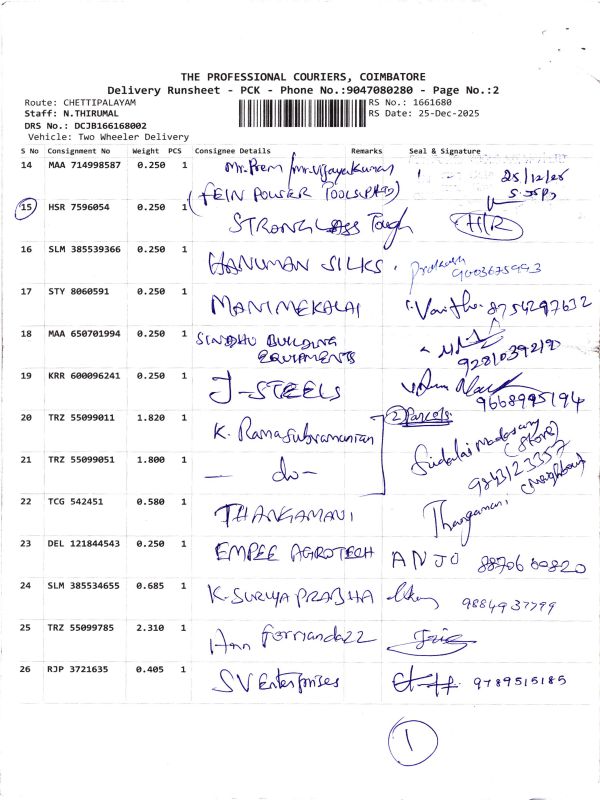 THE PROFESSIONAL COURIERS, COIMBATORE
Delivery Runsheet - PCK - Phone No.:9047080280 - Page No.:2
Route: CHETTIPALAYAM
RS No.: 1661680
Staff: N.THIRUMAL
RS Date: 25-Dec-2025
DRS No.: DCJB166168002
Vehicle: Two Wheeler Delivery
S No Consignment No Weight PCS Consignee Details Remarks Seal & Signature
14 MAA 714998587 0.250 1 Mr. Prem / Mr. Vijayakumar 25/12/25
(FEIN POWER TOOLS
15 HSR 7596054 0.250 1 STRONGLASS Tough
16 SLM 385539366 0.250 1 HANUMAN SILKS. Prakash 9003675993
17 STY 8060591 0.250 1 MANIMEKALAI 8754297632
18 MAA 650701994 0.250 1 SINDHU BUILDING EQUIPMENTS
19 KRR 600096241 0.250 1 J-STEELS 9668995194
20 TRZ 55099011 1.820 1 K. Ramasubramanian (2) Parcels.
(Store)
21 TRZ 55099051 1.800 1 — do — 9843123357
22 TCG 542451 0.580 1 THANGAMANI Thangamani
23 DEL 121844543 0.250 1 EMPEE AGROTECH ANJO
24 SLM 385534655 0.685 1 K. SURIYA PRABHA 9884937799
25 TRZ 55099785 2.310 1
26 RJP 3721635 0.405 1 SV Enterprises 9789515185
1